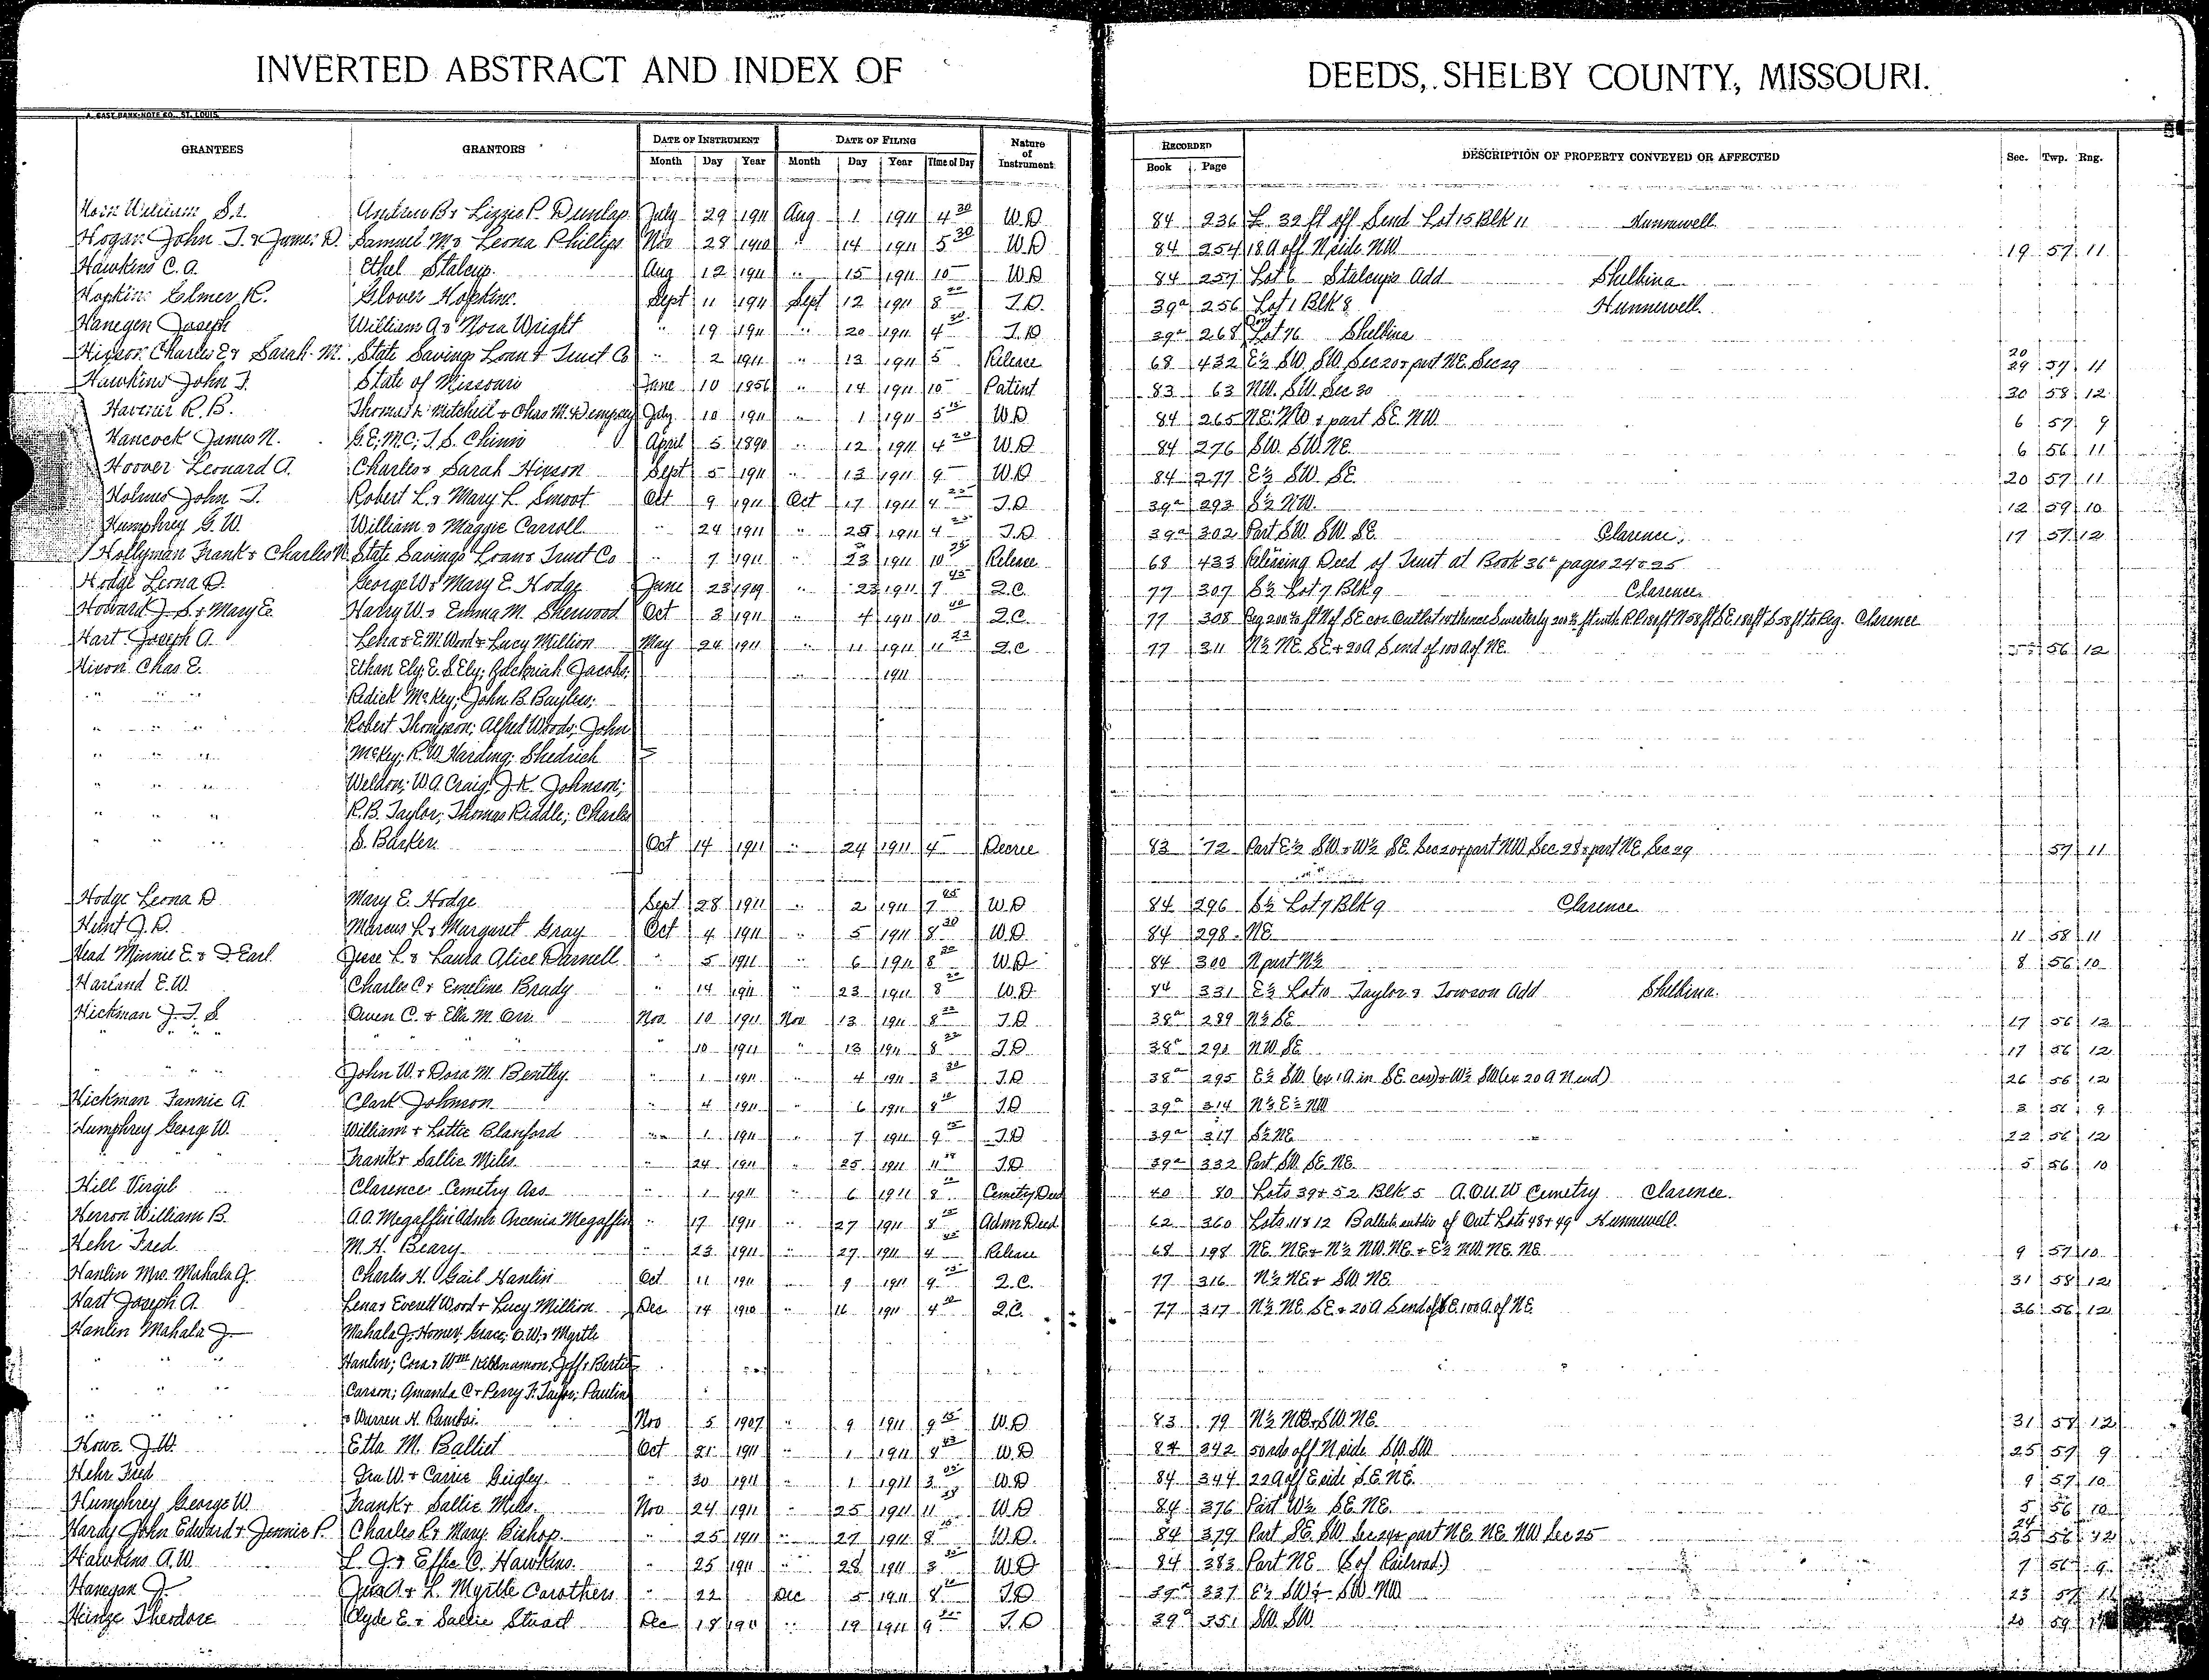 INVERTED ABSTRACT AND INDEX OF DEEDS, SHELBY COUNTY, MISSOURI.
A. GAST BANK NOTE CO., ST. LOUIS.
GRANTEES GRANTORS DATE OF INSTRUMENT DATE OF FILING Nature of Instrument RECORDED DESCRIPTION OF PROPERTY CONVEYED OR AFFECTED Sec. Twp. Rng.
Month Day Year Month Day Year Time of Day Book Page
William S. Andrew B & Lizzie P. Dunlap July 29 1911 Aug 1 1911 4 30 W.D 84 236 32 ft off Send Lot 15 Blk 11 Hunnewell
Hogan John T. & James D. Samuel M & Leona Phillips Nov 28 1910 " 14 1911 5 30 W.D 84 254 18 A off N side NW 19 57 11
Hawkins C. A. Ethel Stalcup Aug 12 1911 " 15 1911 10 W.D 84 257 Lot 6 Stalcups Add Shelbina
Hopkins Elmer K. Glover Hopkins Sept 11 1911 Sept 12 1911 8 T.D. 39a 256 Lot 1 Blk 8 Hunnewell
Hanegen Joseph William A & Nora Wright " 19 1911 " 20 1911 4 T.D 39a 268 Lot 76 Shelbina
Hixson Charles E & Sarah M. State Savings Loan & Trust Co " 2 1911 " 13 1911 5 Release 68 432 E½ SW. SW. Sec 20 & part NE. Sec 29 20 29 57 11
Hawkins John T. State of Missouri June 10 1856 " 14 1911 10 Patent 83 63 NW. SW. Sec 30 30 58 12
R. B. Thomas L. Mitchell & Chas M. Dempsey July 10 1911 " 1 1911 5 15 W.D 84 265 NE. NW & part SE. NW 6 57 9
Hancock James N. G. E; M C; T. S. April 5 1890 " 12 1911 4 20 W.D 84 276 SW. SW. NE. 6 56 11
Hoover Leonard A. Charles & Sarah Hixson Sept 5 1911 " 13 1911 9 W.D 84 277 E½ SW. SE. 20 57 11
Holmes John T. Robert L. & Mary L. Smoot Oct 9 1911 Oct 17 1911 4 T.D 39a 293 S½ NW. 12 59 10
Humphrey G. W. William & Maggie Carroll " 24 1911 " 25 1911 4 T.D 39a 302 Part SW. SW. SE. Clarence 17 57 12
Hollyman Frank & Charles M. State Savings Loan & Trust Co " 7 1911 " 23 1911 10 Release 68 433 Releasing Deed of Trust at Book 36a pages 24 & 25
Hodge Leona D. George W & Mary E. Hodge June 23 1909 " 23 1911 7 45 Q.C. 77 307 S½ Lot 7 Blk 9 Clarence
Howard J. S. & Mary E. Harry W. & Emma M. Sherwood Oct 3 1911 " 4 1911 10 Q.C. 77 308 Clarence
Hart Joseph A. Lena & E. M. Wood & Lucy Million May 24 1911 " 11 1911 11 Q.C 77 311 N½ NE. SE. & 20 A Send of 100 A of NE. 56 12
Hixon Chas E. Ethan Ely; E. S. Ely; Zackriah Jacobs; " 1911
" " Redick McKey; John B. Bayless;
" " Robert Thompson; Alfred Woods; John
" " McKey; R. W. Harding; Shedrich
" " Weldon; W A. Craig; J. K. Johnson;
" " R. B. Taylor; Thomas Riddle; Charles
" " S. Barker Oct 14 1911 " 24 1911 4 Decree 83 72 Part E½ SW. & W½ SE. Sec 20 & part NW Sec 28 & part NE. Sec 29 57 11
Hodge Leona D Mary E. Hodge Sept 28 1911 " 2 1911 7 W.D 84 296 S½ Lot 7 Blk 9 Clarence
Hunt J. D. Marcus L. & Margaret Gray Oct 4 1911 " 5 1911 8 30 W.D 84 298 NE 11 58 11
Head Minnie E. & J. Earl Jesse L. & Laura Alice Darnell " 5 1911 " 6 1911 8 W.D 84 300 N part N½ 8 56 10
Harland E. W. Charles C & Emeline Brady " 14 1911 " 23 1911 8 W.D 84 331 E½ Lot 10 Taylor & Towson Add Shelbina
Hickman J. T. S. Owen C. & Ella M. Orr Nov 10 1911 Nov 13 1911 8 T.D 38a 289 N½ SE 17 56 12
" " " " 10 1911 " 13 1911 8 T.D. 38a 291 NW. SE 17 56 12
" " John W. & Dora M. Bentley " 1 1911 " 4 1911 3 T.D 38a 295 E½ SW. (ex 1 A. in SE. cor) & W½ SW (ex 20 A N end) 26 56 12
Hickman Fannie A. Clark Johnson " 4 1911 " 6 1911 8 T.D 39a 314 N½ E½ NW 3 56 9
Humphrey George W. William & Lottie Blanford " 1 1911 " 7 1911 9 T.D 39a 317 S½ NE 22 56 12
Frank & Sallie Miles " 24 1911 " 25 1911 11 T.D. 39a 332 Part SW. SE. NE. 5 56 10
Hill Virgil Clarence Cemetry Ass " 1 1911 " 6 1911 8 Cemetry Deed 40 80 Lots 39 & 52 Blk 5 A.O.U.W Cemetry Clarence.
Herron William B. A. A. Megaffin Admr Arcenia Megaffin " 17 1911 " 27 1911 8 Admr Deed 62 360 Lots 11 & 12 of Out Lots 48 & 49 Hunnewell
Hehr Fred M. H. Beary " 23 1911 " 27 1911 4 Release 68 198 NE. NE & N½ NW. NE. & E½ NW. NE. NE. 9 57 10
Hanlin Mrs. Mahala J. Charles H. Gail Hanlin Oct 11 1911 " 9 1911 9 Q.C. 77 316 N½ NE & SW. NE. 31 58 12
Hart Joseph A. Lena & Everell Wood & Lucy Million Dec 14 1910 " 16 1911 4 Q.C. 77 317 N½ NE. SE. & 20 A Send of SE. 100 A. of NE. 36 56 12
Hanlin Mahala J. Mahala J. Homer; Grace; O. W. & Myrtle
" " Hanlin; Cora & Wm Jeff & Bertie
" " Carson; Amanda C & Perry F. Taylor; Pauline
" " & Warren H. Nov 5 1907 " 9 1911 9 15 W.D 83 79 N½ NE & SW. NE. 31 58 12
Howe J. W. Etta M. Balliet Oct 21 1911 " 1 1911 W.D 84 342 off N side SW. SW 25 57 9
Hehr Fred Ira W. & Carrie Geigley " 30 1911 " 1 1911 3 W.D 84 344 22 A off E side S.E. NE. 9 57 10
Humphrey George W. Frank & Sallie Miles Nov 24 1911 " 25 1911 11 W.D 84 376 Part W½ SE. NE. 5 56 10
Hardy John Edward & Jennie P. Charles R & Mary Bishop " 25 1911 " 27 1911 8 W.D. 84 379 Part SE. SW Sec 24 & part NE. NE. NW Sec 25 24 25 56 12
Hawkins A. W. L. J. & Effie C. Hawkins " 25 1911 " 28 1911 3 W.D 84 383 Part NE (S of Railroad) 7 56 9
Hanegan J. & L. Myrtle Carothers " 22 Dec 5 1911 8 T.D 39a 337 E½ SW & SW. NW 23 57
Heinze Theodore Clyde E. & Sallie Stuart Dec 18 1911 " 19 1911 9 T.D 39a 351 SW. SW. 20 59